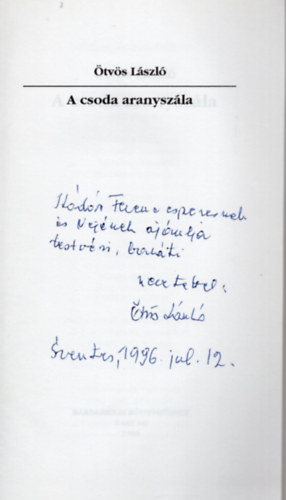 Ötvös László
A csoda aranyszála
Kádár Ferenc esperesnek
és Nejének ajánlja
testvéri, baráti
szeretettel:
Ötvös László
1996. júl. 12.